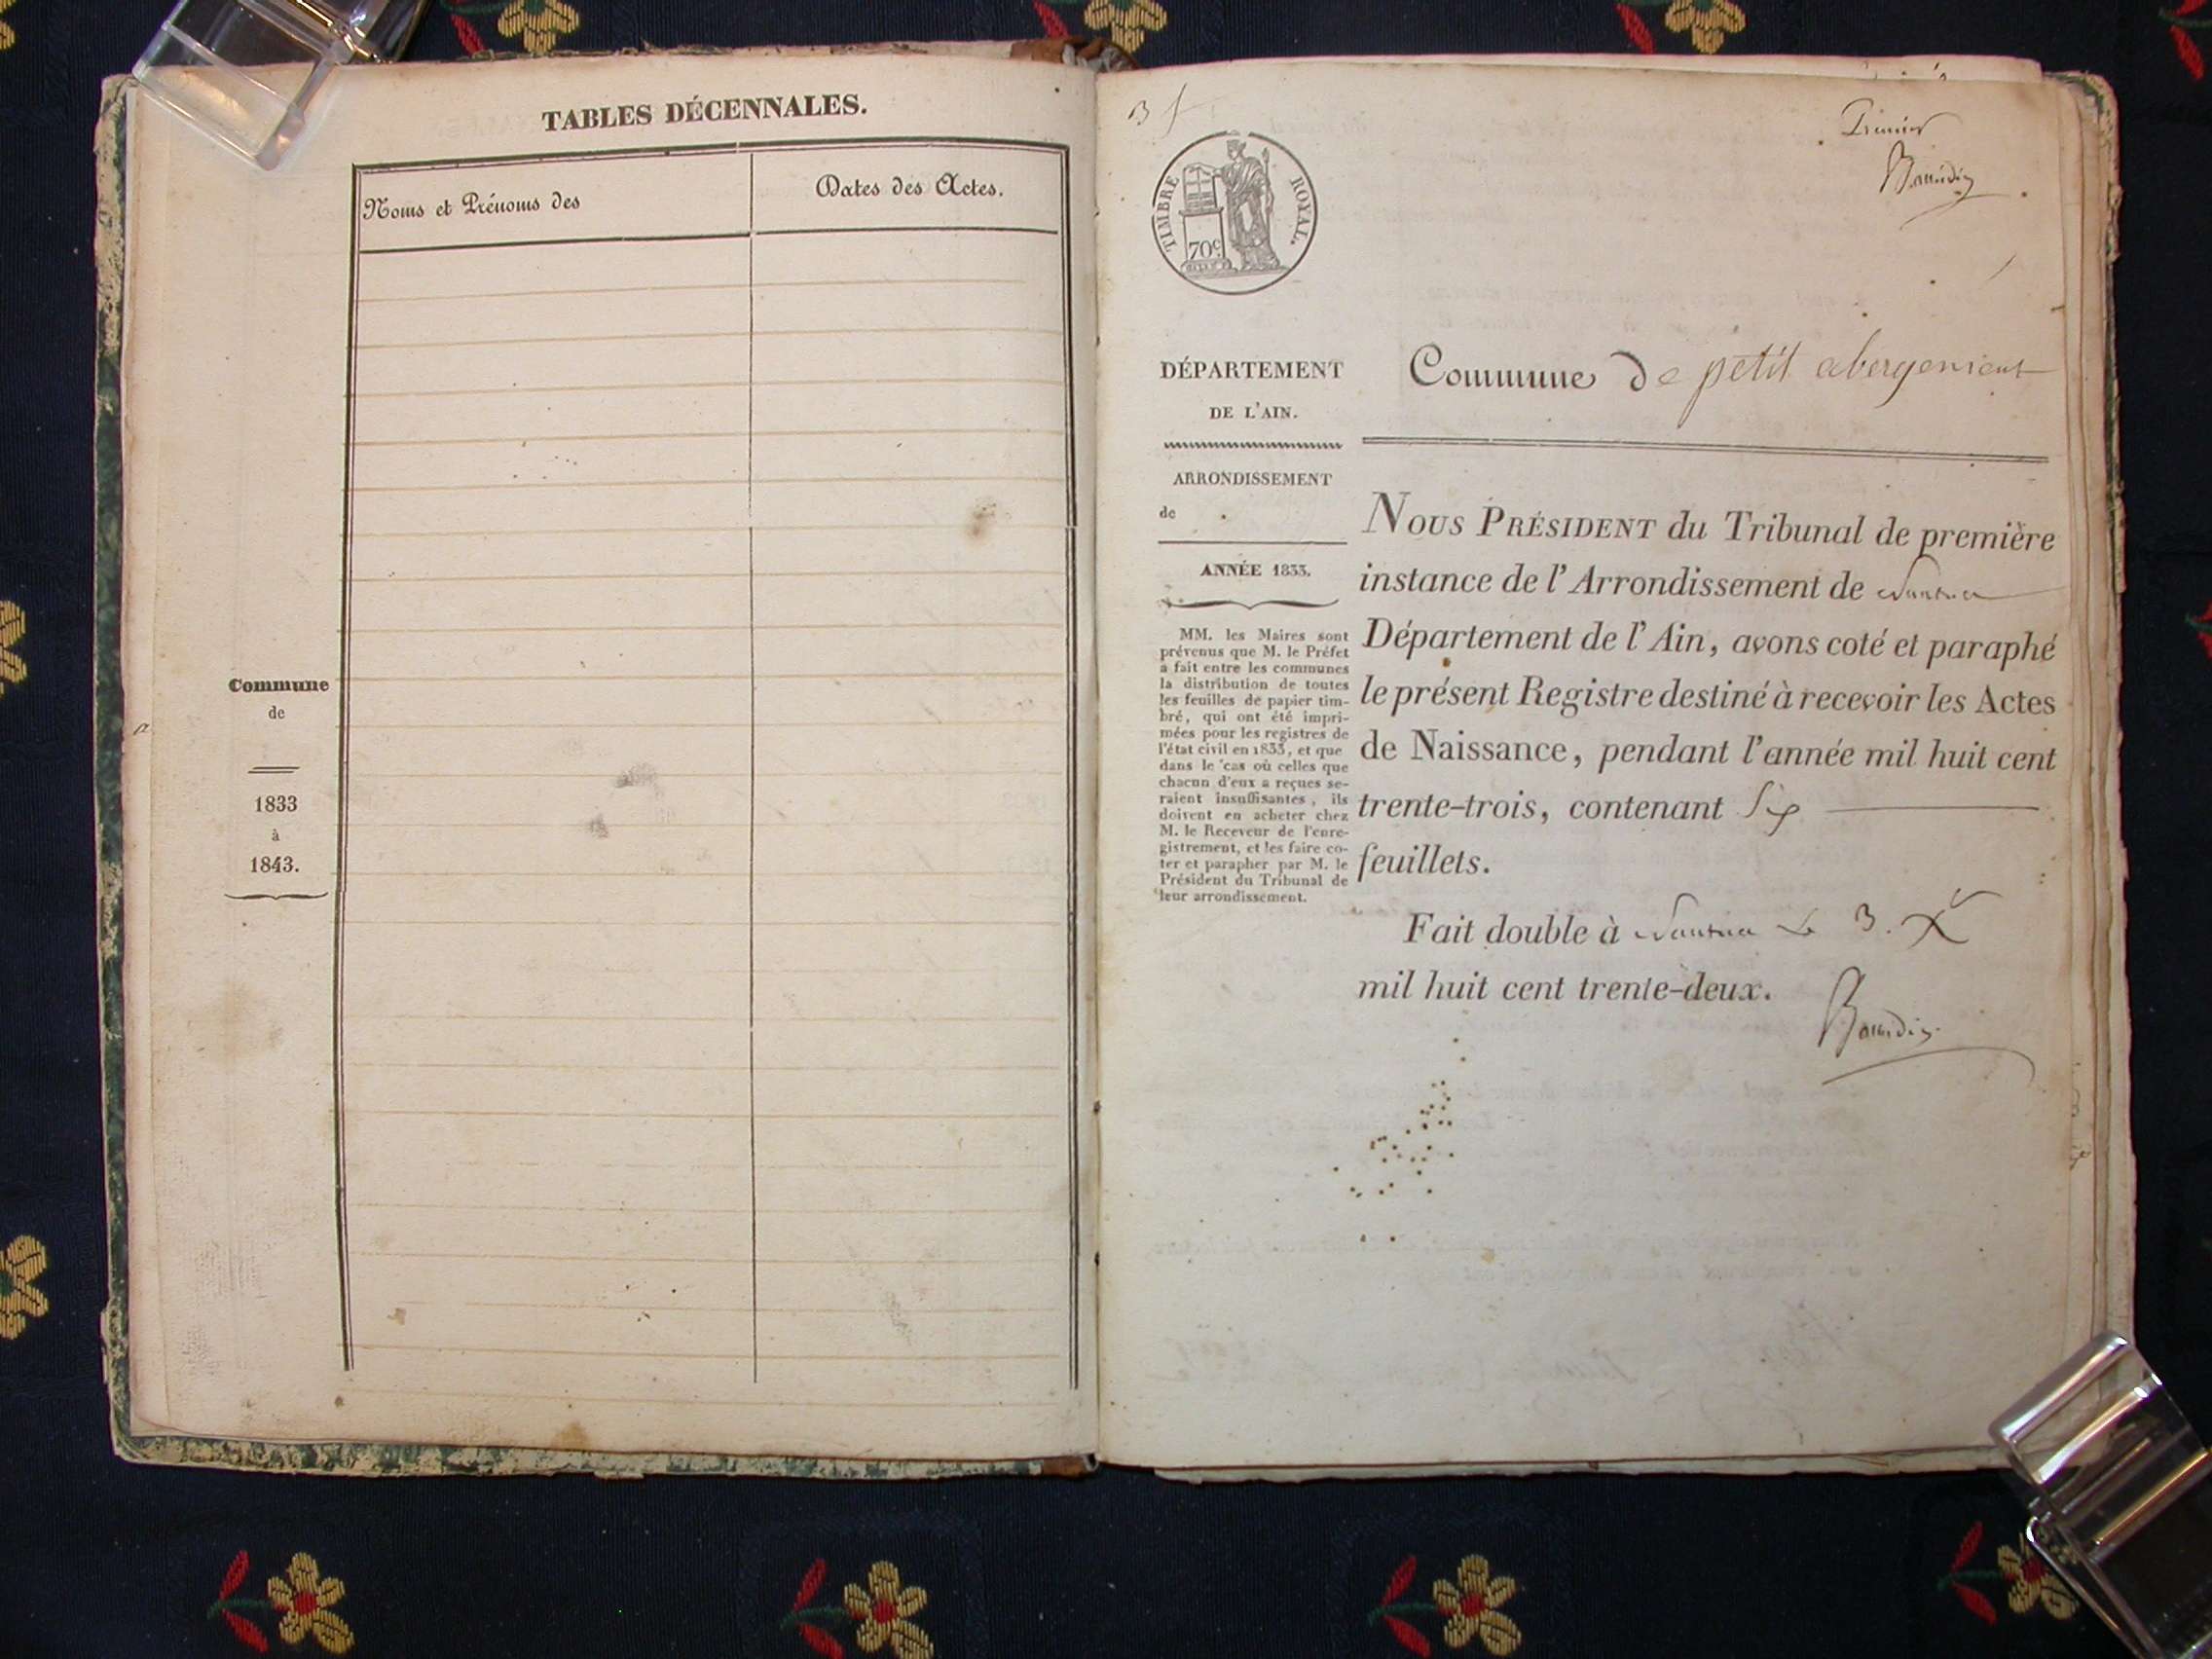 TABLES DÉCENNALES.
Noms et Prénoms des
Dates des Actes.
Commune
de
1833
à
1843.
3 f
Premier
TIMBRE ROYAL.
70c
DÉPARTEMENT
DE L'AIN.
ARRONDISSEMENT
de
ANNÉE 1833.
MM. les Maires sont
prévenus que M. le Préfet
a fait entre les communes
la distribution de toutes
les feuilles de papier tim-
bré, qui ont été impri-
mées pour les registres de
l'état civil en 1833, et que
dans le cas où celles que
chacun d'eux a reçues se-
raient insuffisantes, ils
doivent en acheter chez
M. le Receveur de l'enre-
gistrement, et les faire co-
ter et parapher par M. le
Président du Tribunal de
leur arrondissement.
Commune de petit abergement
NOUS PRÉSIDENT du Tribunal de première
instance de l'Arrondissement de Nantua
Département de l'Ain, avons coté et paraphé
le présent Registre destiné à recevoir les Actes
de Naissance, pendant l'année mil huit cent
trente-trois, contenant Six
feuillets.
Fait double à Nantua le 3. Xe
mil huit cent trente-deux.